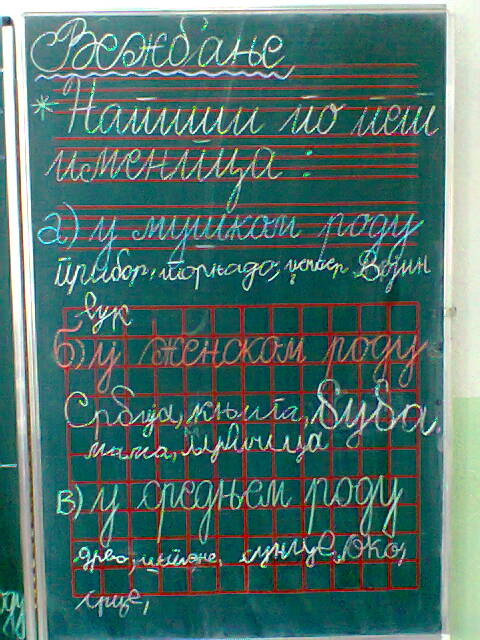 Вежбање
* Напиши по пет
именица :
а) у мушком роду
прибор, торнадо, Војин
вук
б) у женском роду
Србија, књига, буба,
мама,
в) у средњем роду
дрво, сунце, око,
срце,